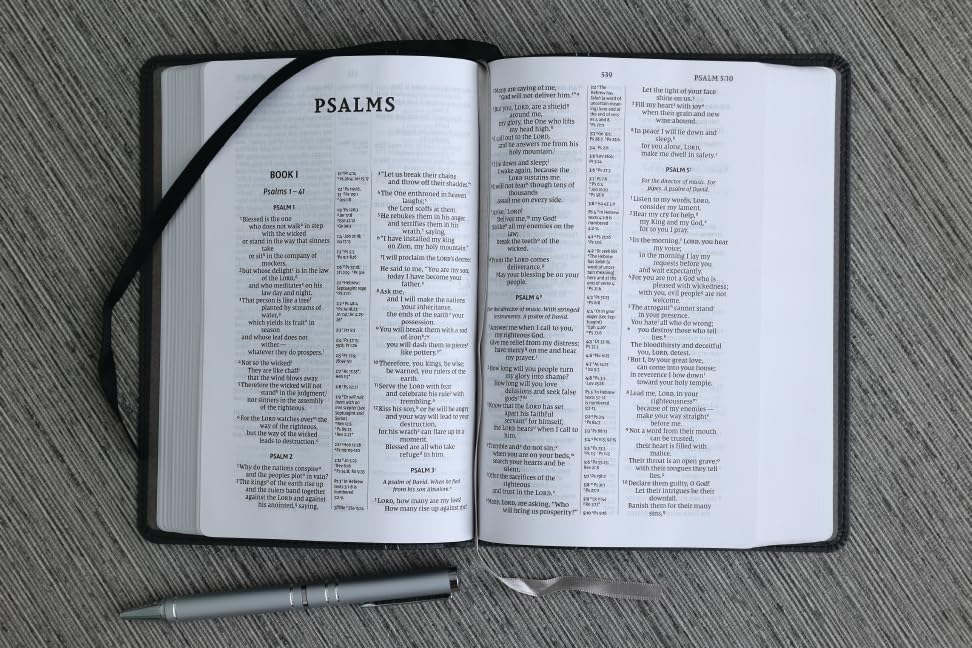 PSALMS
BOOK I
Psalms 1–41
PSALM 1
¹Blessed is the one
who does not walk in step
with the wicked
or stand in the way that sinners
take
or sit in the company of
mockers,
²but whose delight is in the law
of the LORD,
and who meditates on his
law day and night.
³That person is like a tree
planted by streams of
water,
which yields its fruit in
season
and whose leaf does not
wither—
whatever they do prospers.
⁴Not so the wicked!
They are like chaff
that the wind blows away.
⁵Therefore the wicked will not
stand in the judgment,
nor sinners in the assembly
of the righteous.
⁶For the LORD watches over the
way of the righteous,
but the way of the wicked
leads to destruction.
PSALM 2
¹Why do the nations conspire
and the peoples plot in vain?
²The kings of the earth rise up
and the rulers band together
against the LORD and against
his anointed, saying,
³"Let us break their chains
and throw off their shackles."
⁴The One enthroned in heaven
laughs;
the Lord scoffs at them.
⁵He rebukes them in his anger
and terrifies them in his
wrath, saying,
⁶"I have installed my king
on Zion, my holy mountain."
⁷I will proclaim the LORD's decree:
He said to me, "You are my son;
today I have become your
father.
⁸Ask me,
and I will make the nations
your inheritance,
the ends of the earth your
possession.
⁹You will break them with a rod
of iron;
you will dash them to pieces
like pottery."
¹⁰Therefore, you kings, be wise;
be warned, you rulers of the
earth.
¹¹Serve the LORD with fear
and celebrate his rule with
trembling.
¹²Kiss his son, or he will be angry
and your way will lead to your
destruction,
for his wrath can flare up in a
moment.
Blessed are all who take
refuge in him.
PSALM 3
A psalm of David. When he fled
from his son Absalom.
¹LORD, how many are my foes!
How many rise up against me!
539
PSALM 5:10
Many are saying of me,
"God will not deliver him."
But you, LORD, are a shield
around me,
my glory, the One who lifts
my head high.
I call out to the LORD,
and he answers me from his
holy mountain.
I lie down and sleep;
I wake again, because the
LORD sustains me.
I will not fear though tens of
thousands
assail me on every side.
Arise, LORD!
Deliver me, my God!
Strike all my enemies on the
jaw;
break the teeth of the
wicked.
From the LORD comes
deliverance.
May your blessing be on your
people.
PSALM 4
For the director of music. With stringed
instruments. A psalm of David.
Answer me when I call to you,
my righteous God.
Give me relief from my distress;
have mercy on me and hear
my prayer.
How long will you people turn
my glory into shame?
How long will you love
delusions and seek false
gods?
Know that the LORD has set
apart his faithful
servant for himself;
the LORD hears when I call to
him.
Tremble and do not sin;
when you are on your beds,
search your hearts and be
silent.
Offer the sacrifices of the
righteous
and trust in the LORD.
Many, LORD, are asking, "Who
will bring us prosperity?"
Let the light of your face
shine on us.
⁷Fill my heart with joy
when their grain and new
wine abound.
⁸In peace I will lie down and
sleep,
for you alone, LORD,
make me dwell in safety.
PSALM 5
For the director of music. For
pipes. A psalm of David.
¹Listen to my words, LORD,
consider my lament.
²Hear my cry for help,
my King and my God,
for to you I pray.
³In the morning, LORD, you hear
my voice;
in the morning I lay my
requests before you
and wait expectantly.
⁴For you are not a God who is
pleased with wickedness;
with you, evil people are not
welcome.
⁵The arrogant cannot stand
in your presence.
You hate all who do wrong;
⁶you destroy those who tell
lies.
The bloodthirsty and deceitful
you, LORD, detest.
⁷But I, by your great love,
can come into your house;
in reverence I bow down
toward your holy temple.
⁸Lead me, LORD, in your
righteousness
because of my enemies—
make your way straight
before me.
⁹Not a word from their mouth
can be trusted;
their heart is filled with
malice.
Their throat is an open grave;
with their tongues they tell
lies.
¹⁰Declare them guilty, O God!
Let their intrigues be their
downfall.
Banish them for their many
sins,